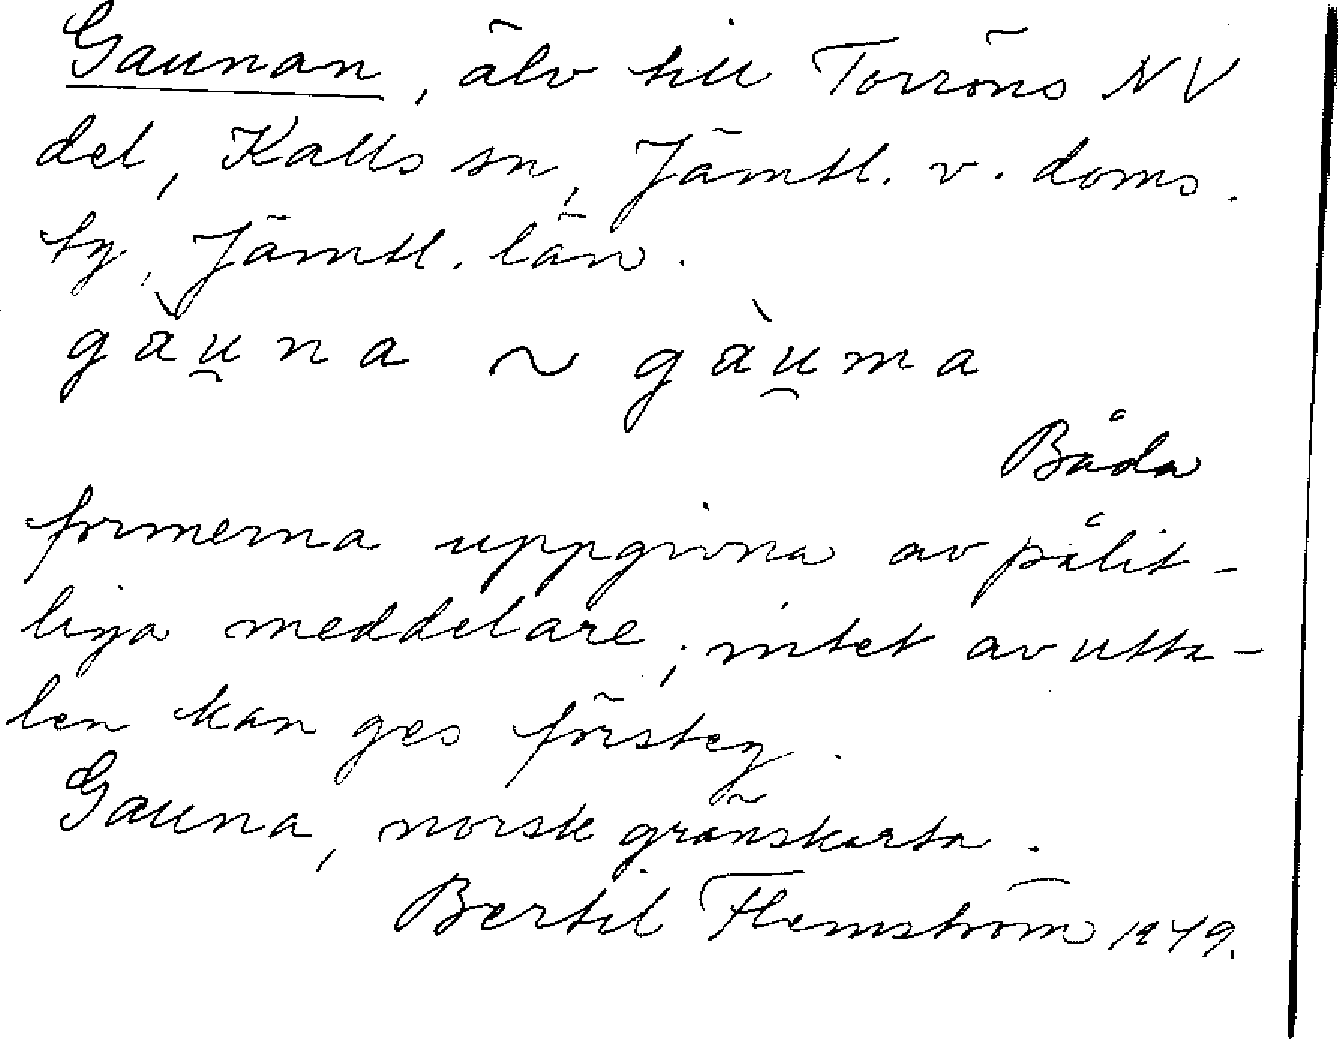 Gaunan, älv till Torröns NV
del, Kalls sn, Jämtl. v. doms.
by, Jämtl. län.
gàu̯na ~ gàu̯ma
Båda
formerna uppgivna av pålit-
liga meddelare; intet av utta-
len kan ges försteg.
Gauna, norsk gränskarta.
Bertil Flemström 1949.